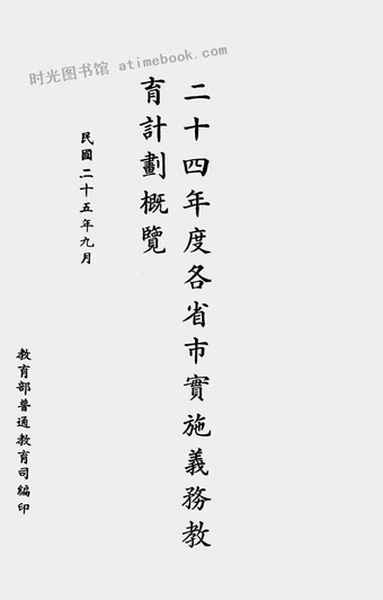 时光图书馆 atimebook.com
二十四年度各省市實施義務教
育計劃概覽
民國二十五年九月
教育部普通教育司編印